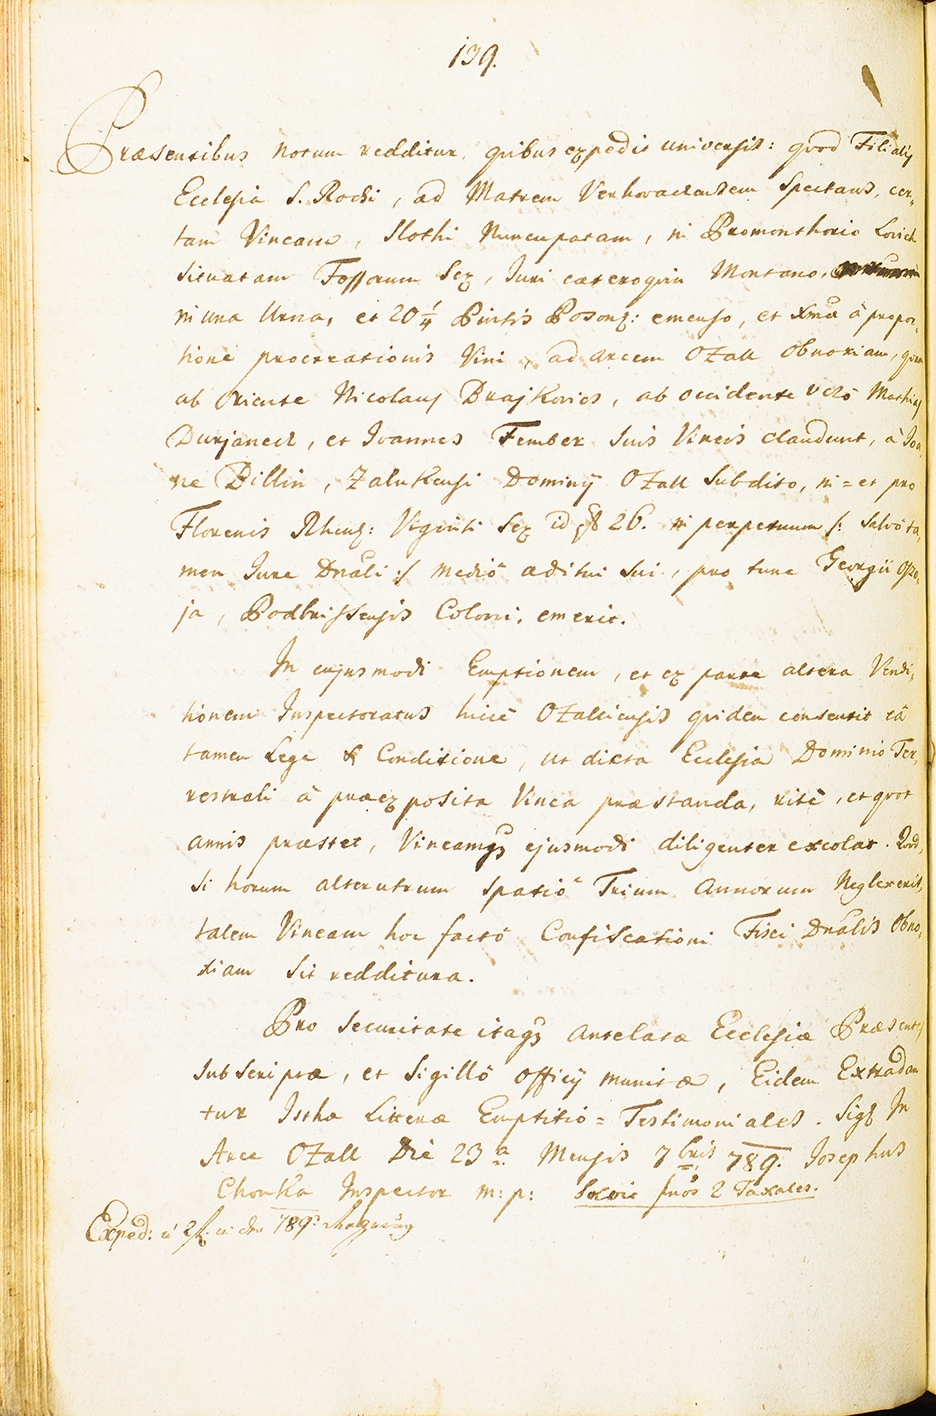 139.
Præsentibus notum redditur, quibus expedit universis: quod Filialis
Ecclesia S. Rochi, ad Matrem Verhovacensem Spectans, cer,
tam Vineam, Slothi Nuncupatam, in Promonthorio Lovich
Situatam Fossorum Sex, Juri cæteroquin Montano,
in una Urna, et 20 1/4 Pintis Posonş: emenso, et Xmæ à propor,
tione procreationis Vini, ad Arcem Ozall Obnoxiam, quam
ab Oriente Nicolaus Drajkovics, ab occidente verò Mathias
Durjanecz, et Joannes Fember Suis Vineis claudunt, à Joa
ne Dillin, Zalukensi Dominÿ Ozall Subdito, in = et pro
Florenis Rhenş: Viginti Sex id est 26. in perpetuum /: Salvô ta,
men Jure Dnāli :/ mediô æditui Sui, pro tunc Georgii
ja, Podbrissensis Coloni, emerit.
In cujusmodi Emptionem, et ex parte altera Vendi,
tionem Inspectoratus hicce Ozaliensis quidem consensit eâ
tamen Lege & Conditione, ut dicta Ecclesia Dominio Ter,
restrali à præexposita Vinea præstanda, ritè, et quot
annis præstet, Vineamq3 ejusmodi diligenter excolat. Quod,
si horum alterutrum Spatiô Trium Annorum Neglexerit,
talem Vineam hoc factô Confiscationi Fisci Dnālis Obno,
xiam Sit redditura.
Pro Securitate itaq3 Antelatæ Ecclesiæ Præsent,
Subscriptæ, et Sigillô Officÿ munitæ, Eidem Extradan
tur Isthæ Litteræ Emptitiô = Testimoniales. Sigş In
Arce Ozall Die 23 a. Mensis 7bris 789. Josephus
Chonka Inspector m: p: Solvit fnos 2 Taxales.
Exped: à 2f. 789